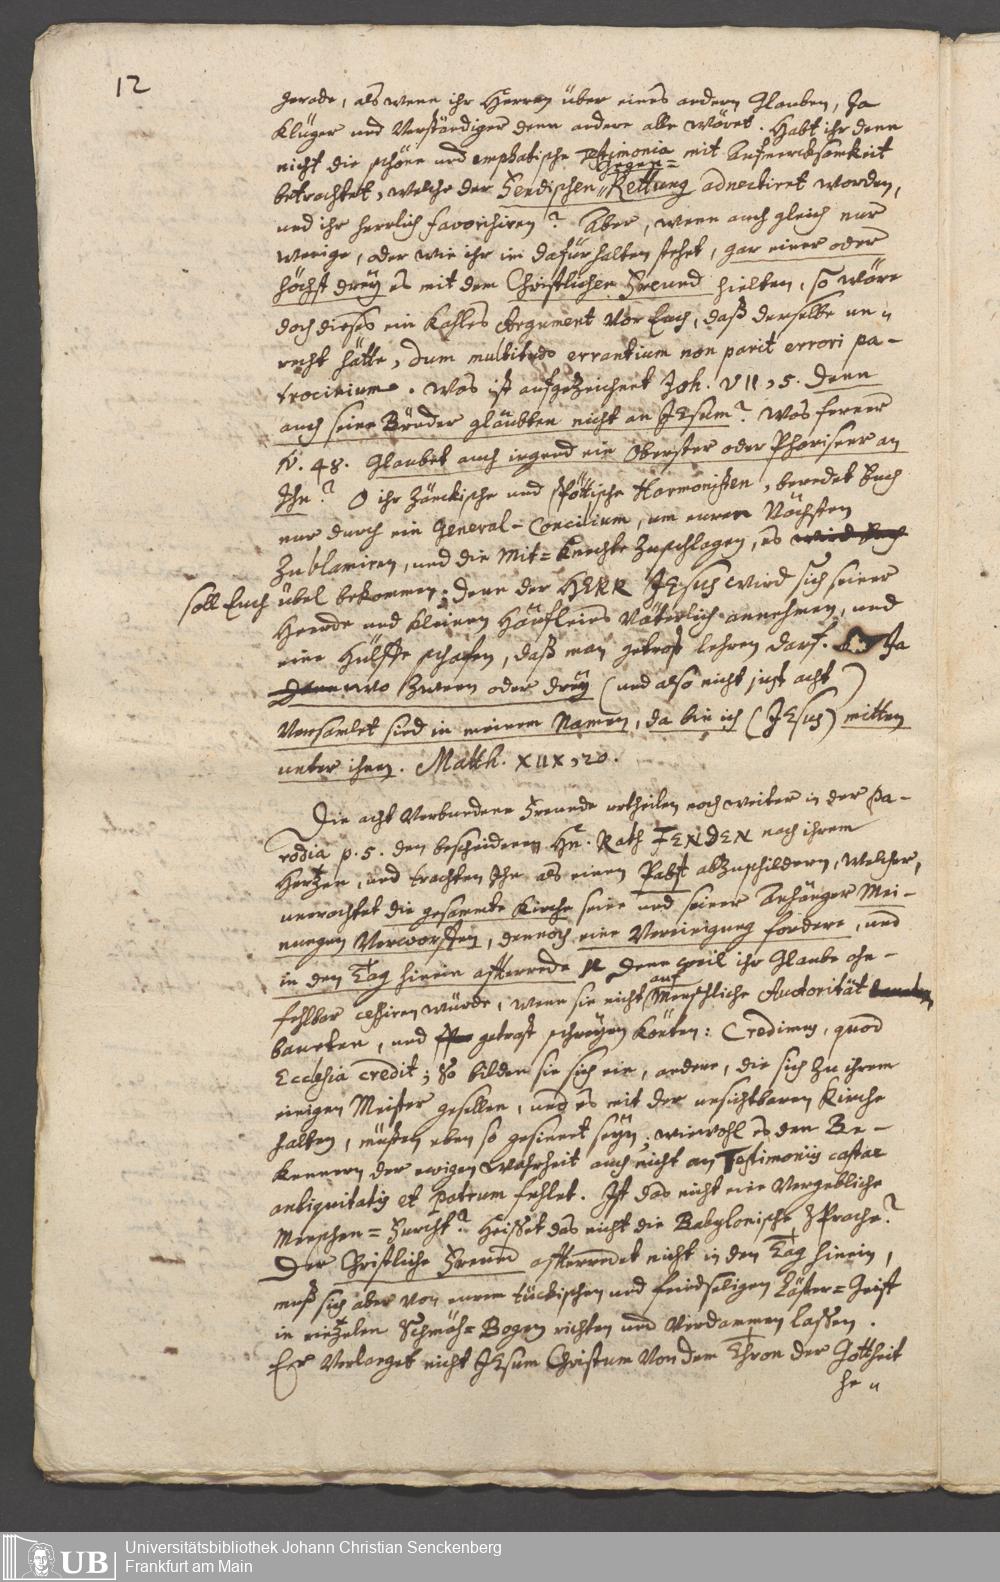 12
gerade, als wenn ihr Herren über eines andern Glauben, Ja
klüger und Verständiger denn andere alle wäret. Habt ihr denn
nicht die schöne und emphatische Testimonia mit Aufmercksamkeit
betrachtet, welche der Fendischen Gegen= Rettung adnectiret worden,
und ihr herrlich favorisiren? Aber, wenn auch gleich nur
wenige, oder wie ihr im dafürhalten stehet, gar einer oder
höchst drey es mit dem Christlichen Freund hielten, so wäre
doch dieses ein kahles Argument Vor Euch, daß derselbe un=
recht hätte, dum multitudo errantium non parit errori pa-
trocinium. Was ist aufgezeichnet Joh. VII, 5. Denn
auch seine Brüder gläubten nicht an JEsum? Was ferner
V. 48. Glaubet auch irgend ein Oberster oder Phariseer an
Ihn? O ihr Zänckische und spöttische Harmonisten, beredet Euch
nur durch ein General-Concilium, um euren Nächsten
Zu blamiren, und die Mit=Knechte Zuschlagen, es wird Euch
soll Euch übel bekommen. Denn der HERR JEsus wird sich seiner
Heerde und kleinen Häufleins Väterlich annehmen, und
eine Hülffe schafen, daß man getrost lehren darf. Ja
Denn wo Zween oder drey (und also nicht just acht)
Versamlet sind in meinem Namen, da bin ich (JEsus) mitten
unter ihnen. Matth. XIIX, 20.
Die acht Verbundene Freunde urtheilen noch weiter in der Pa-
rodia p. 5. den bescheidenen Hn. Rath FENDEN nach ihrem
Hertzen, und trachten Ihn als einen Pabst abzuschildern, welcher,
unerachtet die gesammte Kirche seine und seiner Anhänger Mei-
nungen Verworffen, dennoch eine Vereinigung fordere, und
in den Tag hinein affterrede. Denn weil ihr Glaube ohn-
fehlbar cessiren würde, wenn sie nicht auf Menschliche Autorität
baueten, und getrost schreyen könten: Credimus, quod
Ecclesia credit; So bilden sie sich ein, andere, die sich zu ihrem
einigen Meister gesellen, und es mit der unsichtbaren Kirche
halten, müsten eben so gesinnet seyn, wiewohl es den Be-
kennern der ewigen Wahrheit auch nicht an Testimoniis castae
antiquitatis et patrum fehlet. Ist das nicht eine Vergebliche
Menschen=Furcht? Heisset das nicht die Babylonische Sprache?
Der Christliche Freund affterredet nicht in den Tag hinein,
muß sich aber von eurem tückischen und feindseligen Läster=Geist
in eintzelen Schmäh=Bogen richten und Verdammen lassen.
Er Verlanget nicht JEsum Christum Von dem Thron der Gottheit
he=
Universitätsbibliothek Johann Christian Senckenberg
UB Frankfurt am Main